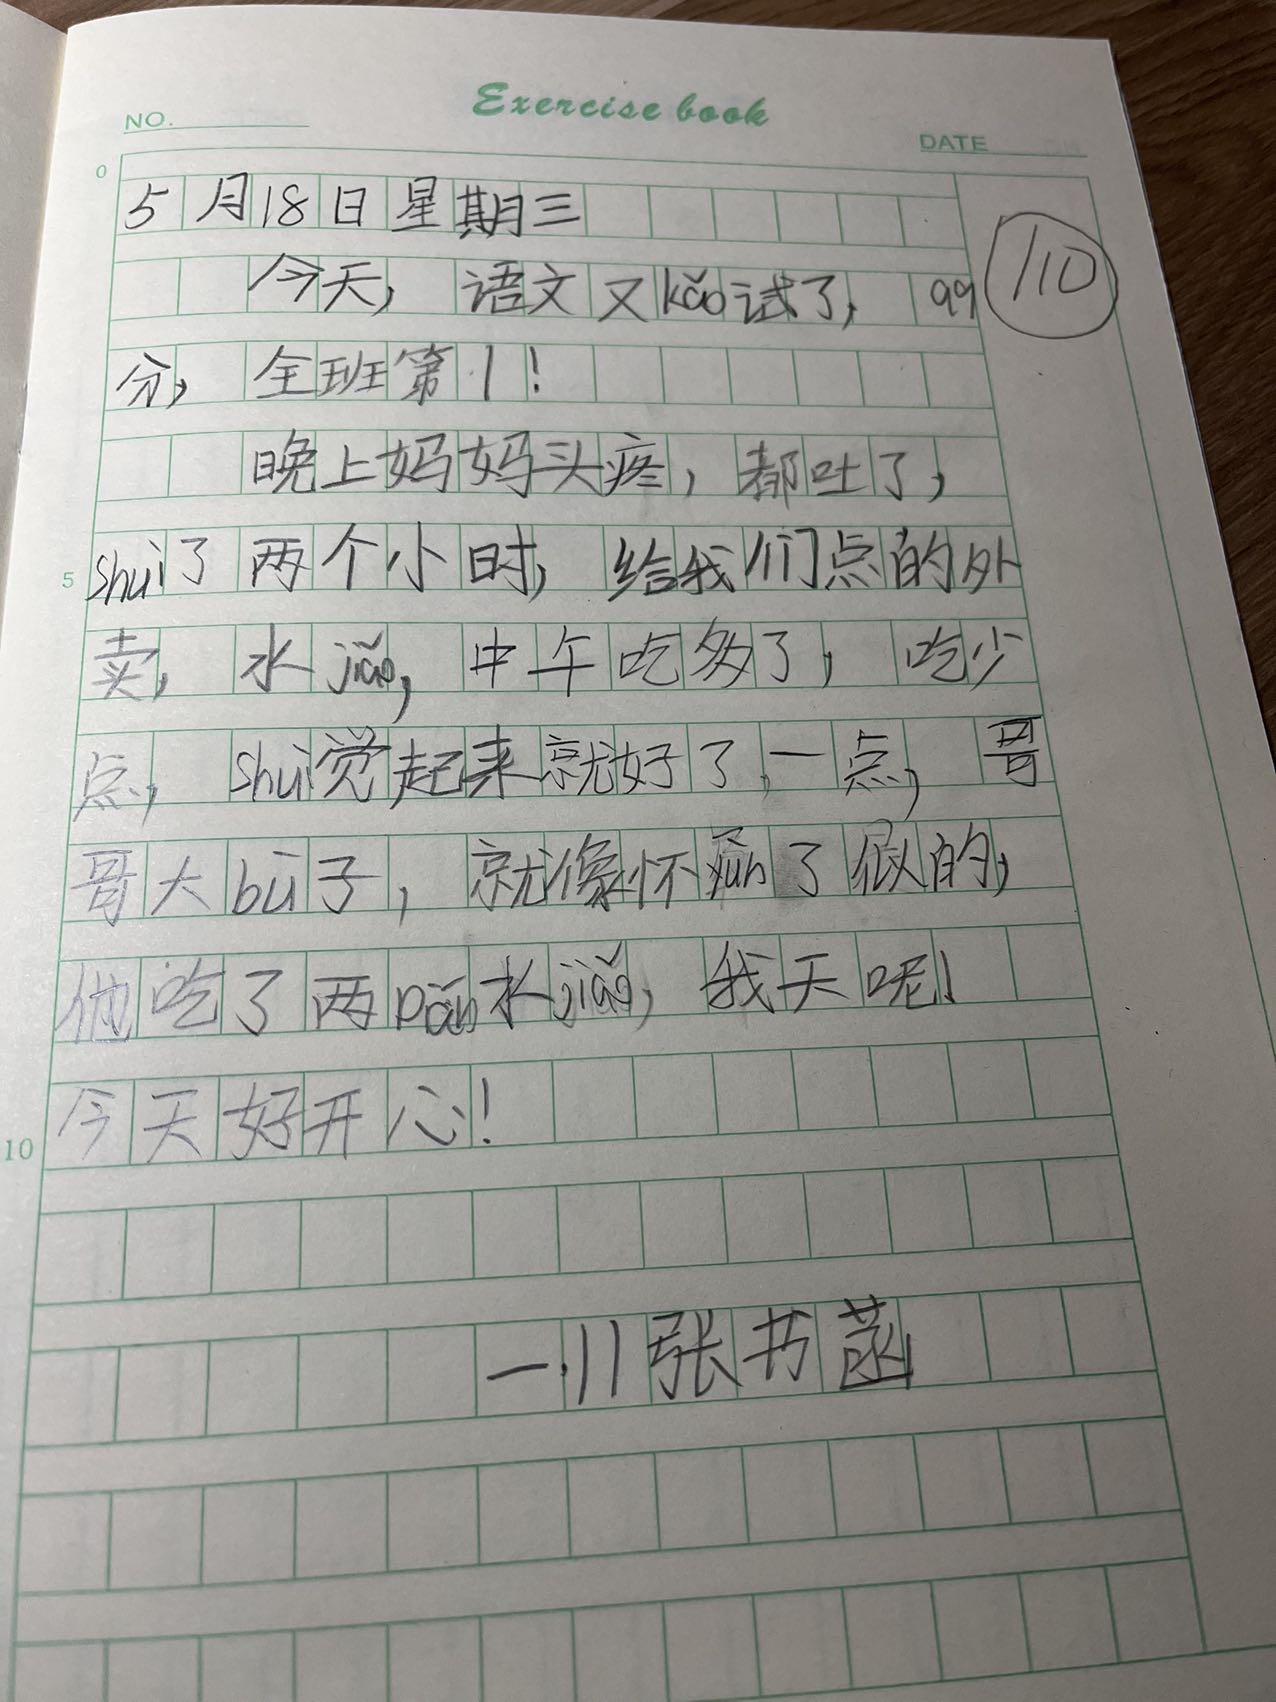 Exercise book
NO.
DATE
0
5月18日星期三
110
今天，语文又kǎo试了，99
分，全班第1！
晚上妈妈头疼，都吐了，
5
shuì了两个小时，给我们点的外
卖，水jiǎo，中午吃多了，吃少
点，shuì觉起来就好了一点，哥
哥大bǔ子，就像怀yùn了似的，
他吃了两pán水jiǎo，我天呢！
10
今天好开心！
一.11张书菡